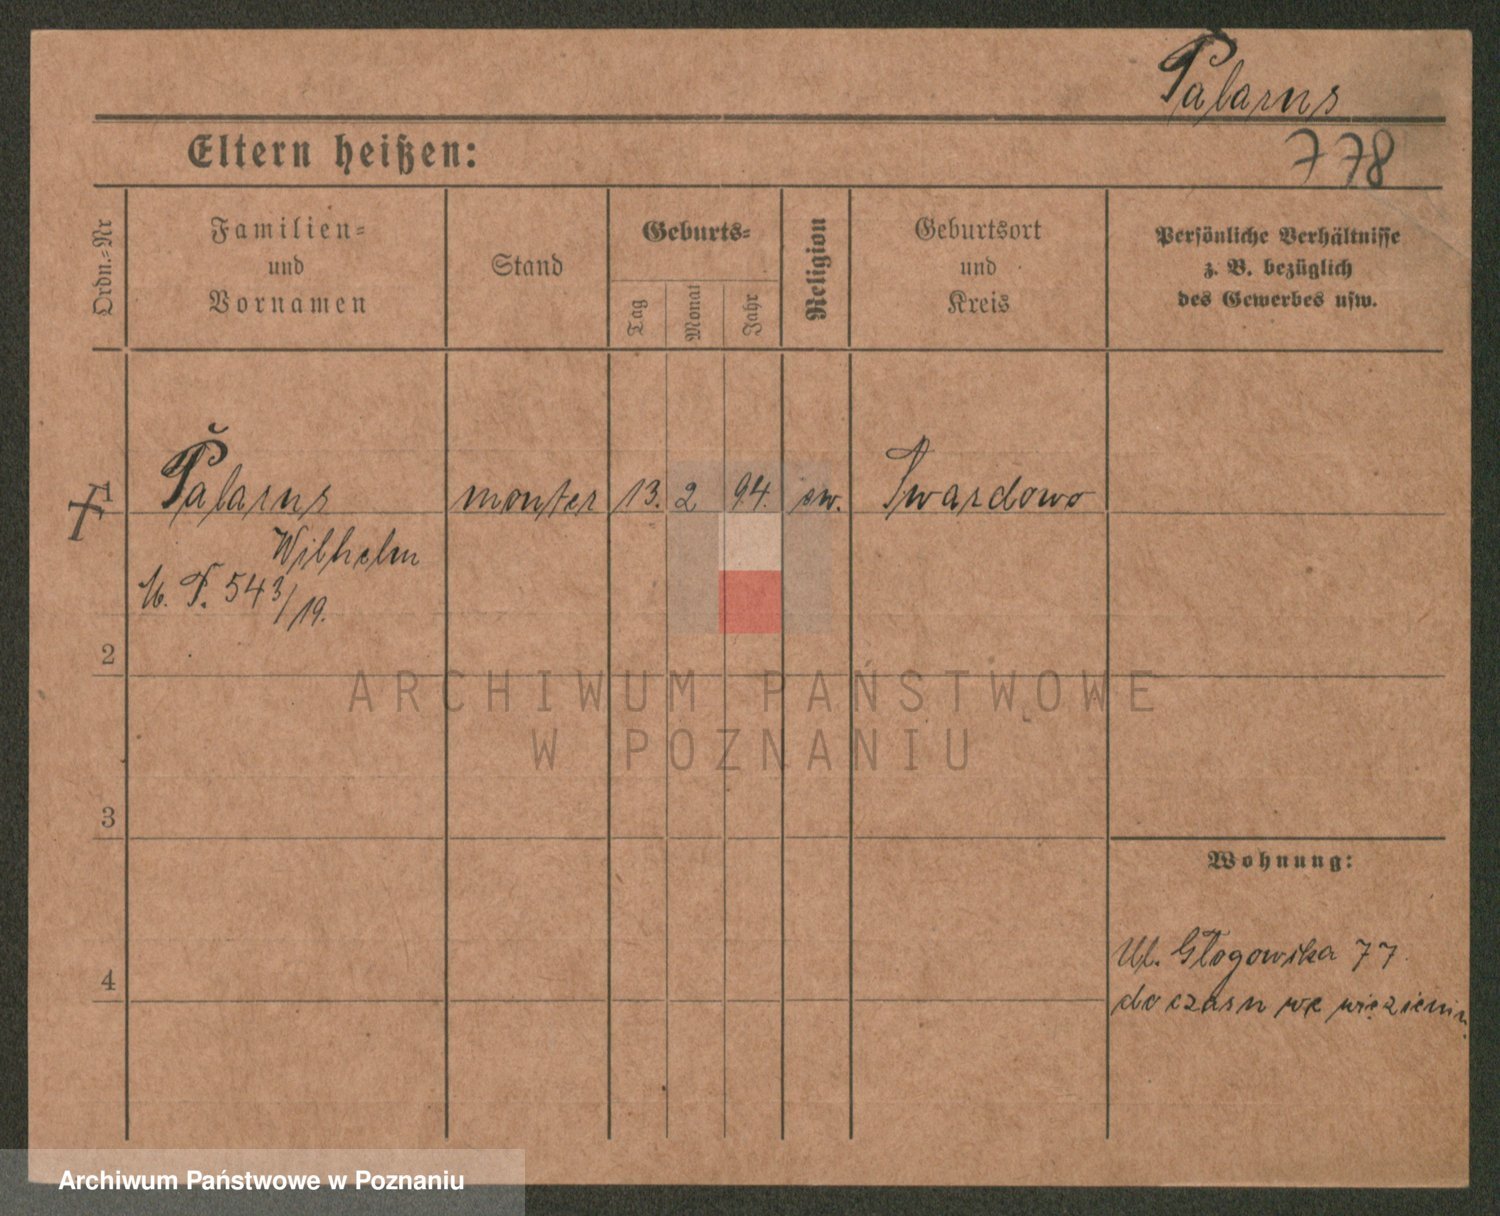 Palarus
778
Eltern heißen:
Ordn.=Nr
Familien=
und
Vornamen
Stand
Geburts=
Tag
Monat
Jahr
Religion
Geburtsort
und
Kreis
Persönliche Verhältnisse
z. B. bezüglich
des Gewerbes usw.
1
Palarus
monter
13.
2
94.
ew.
Twardowo
Wilhelm
543/19.
2
ARCHIWUM PAŃSTWOWE
W POZNANIU
3
Wohnung:
Ul. Głogowska 77.
4
do czasu we więzieniu
Archiwum Państwowe w Poznaniu